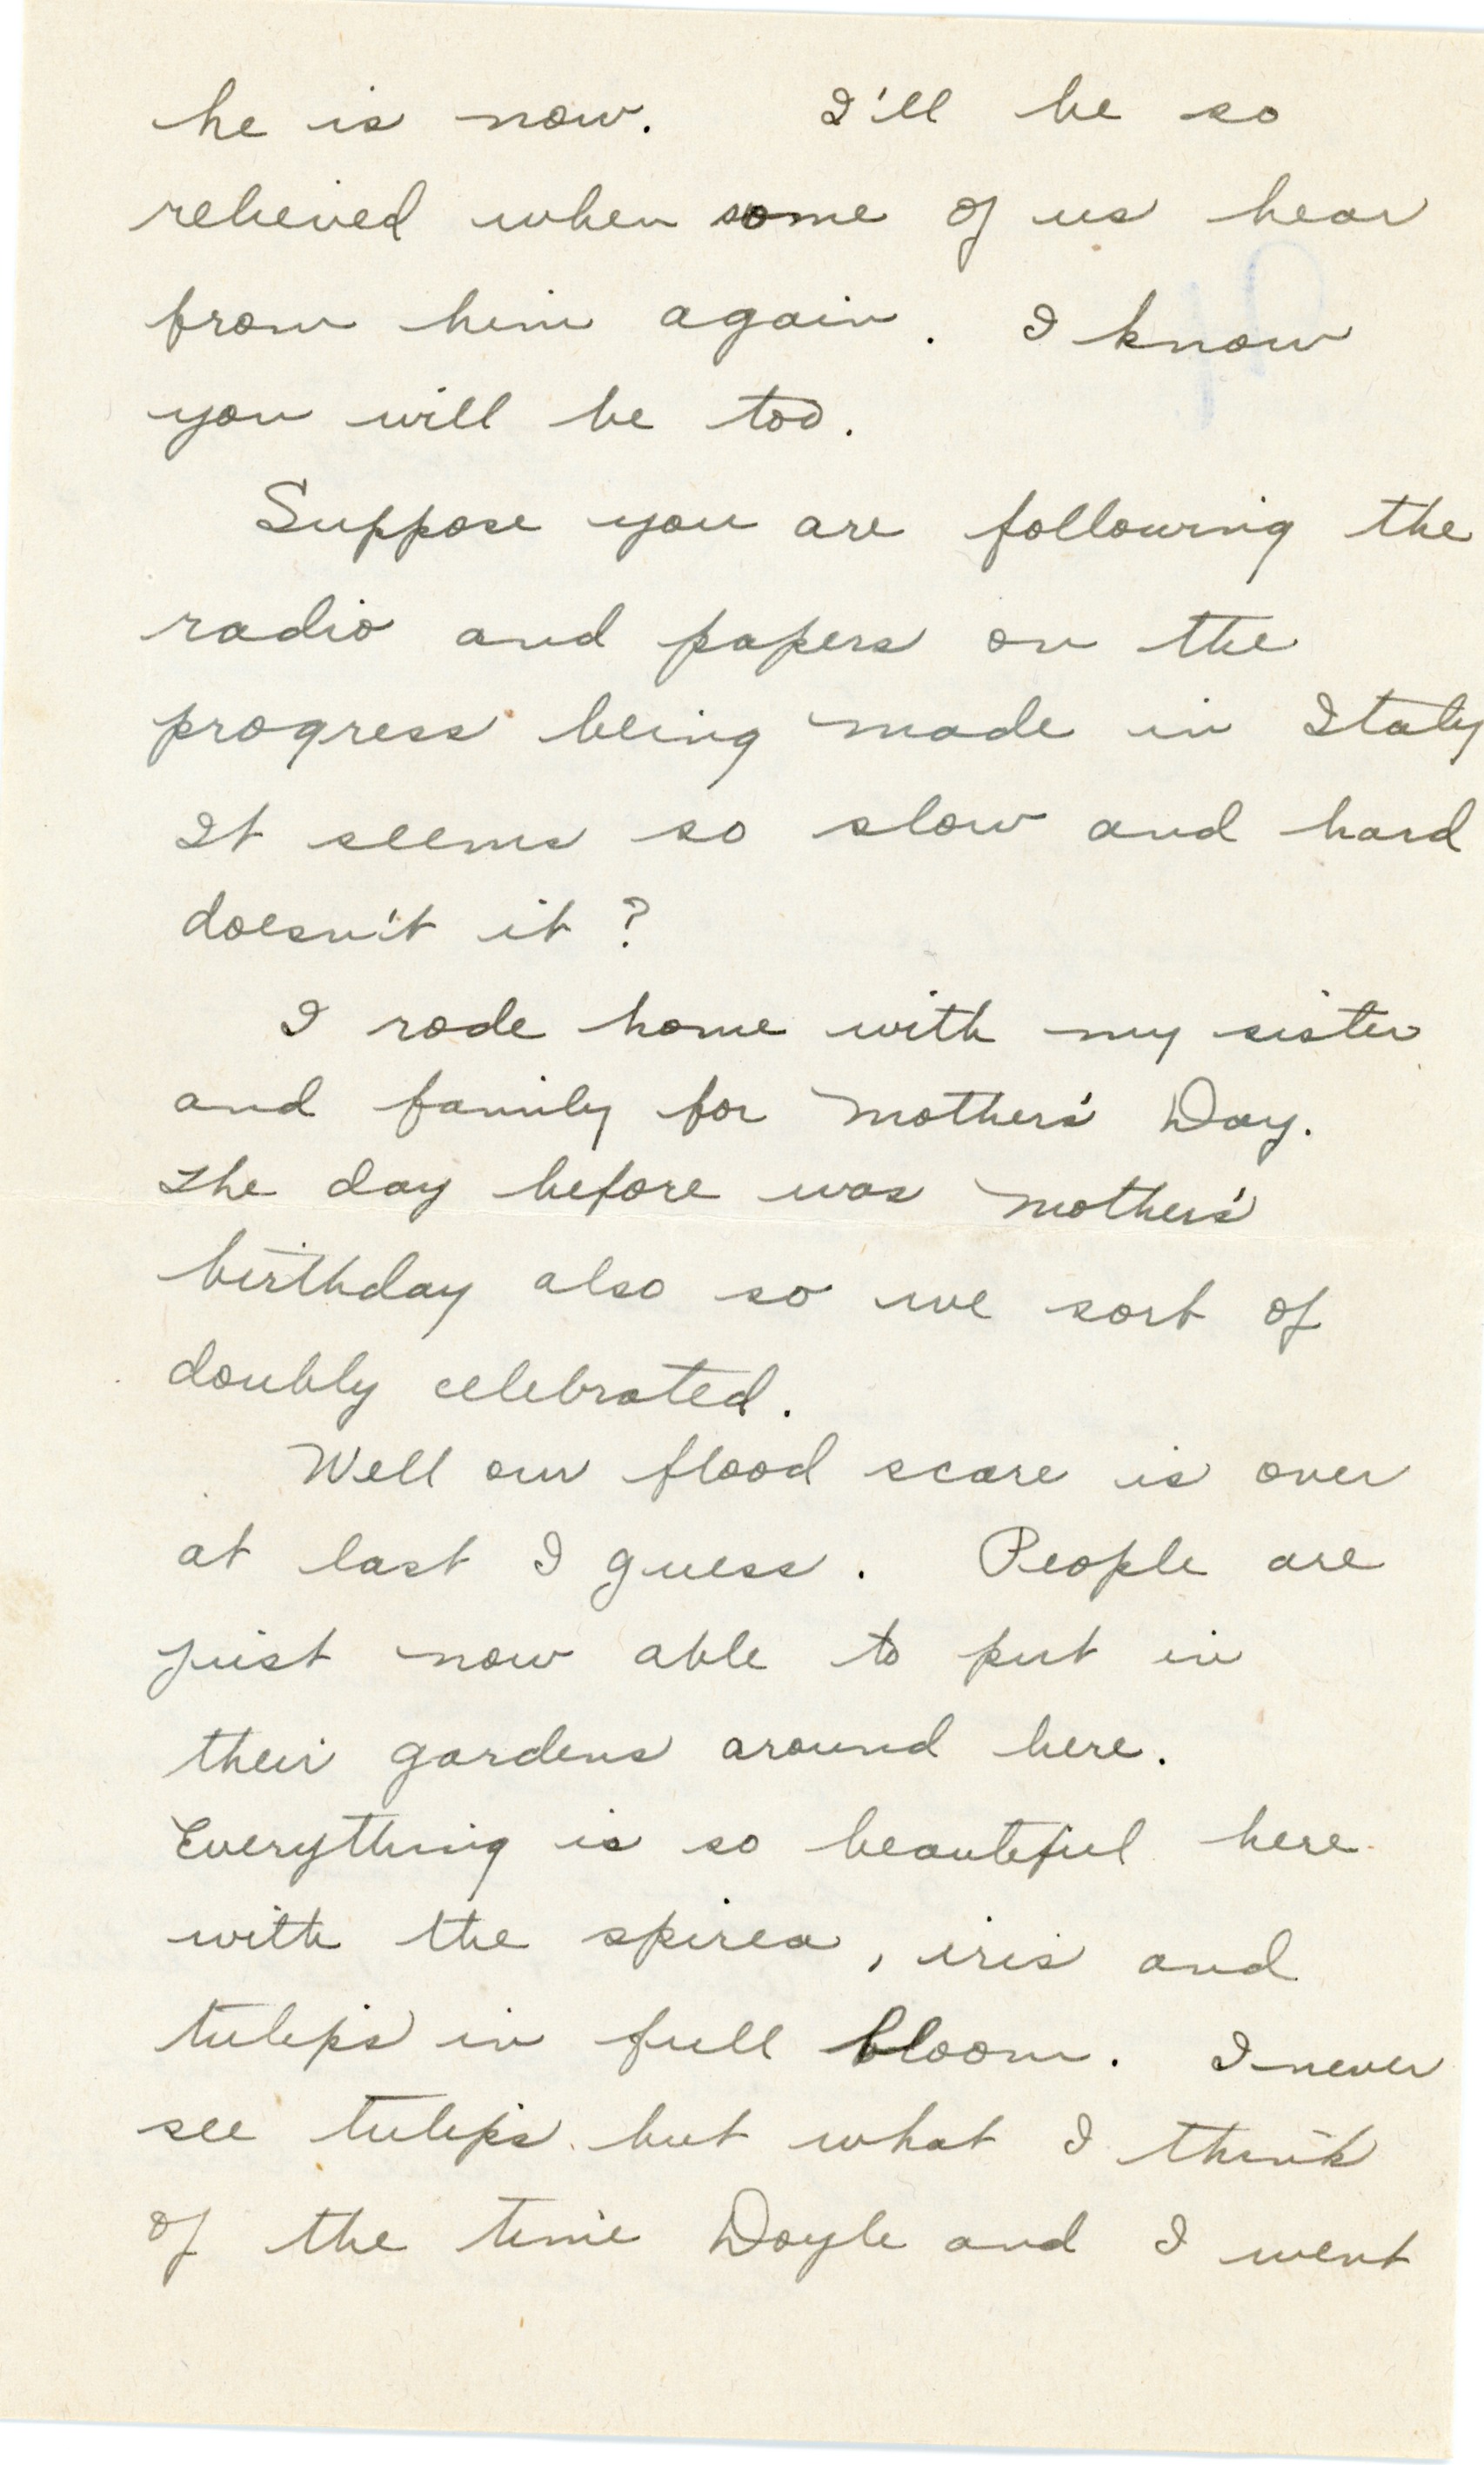 he is now. I'll be so
relieved when some of us hear
from him again. I know
you will be too.
Suppose you are following the
radio and papers on the
progress being made in Italy
It seems so slow and hard
doesn't it?
I rode home with my sister
and family for Mother's Day.
The day before was Mother's
birthday also so we sort of
doubly celebrated.
Well our flood scare is over
at last I guess. People are
just now able to put in
their gardens around here.
Everything is so beautiful here
with the spirea, iris and
tulips in full bloom. I never
see tulips but what I think
of the time Doyle and I went